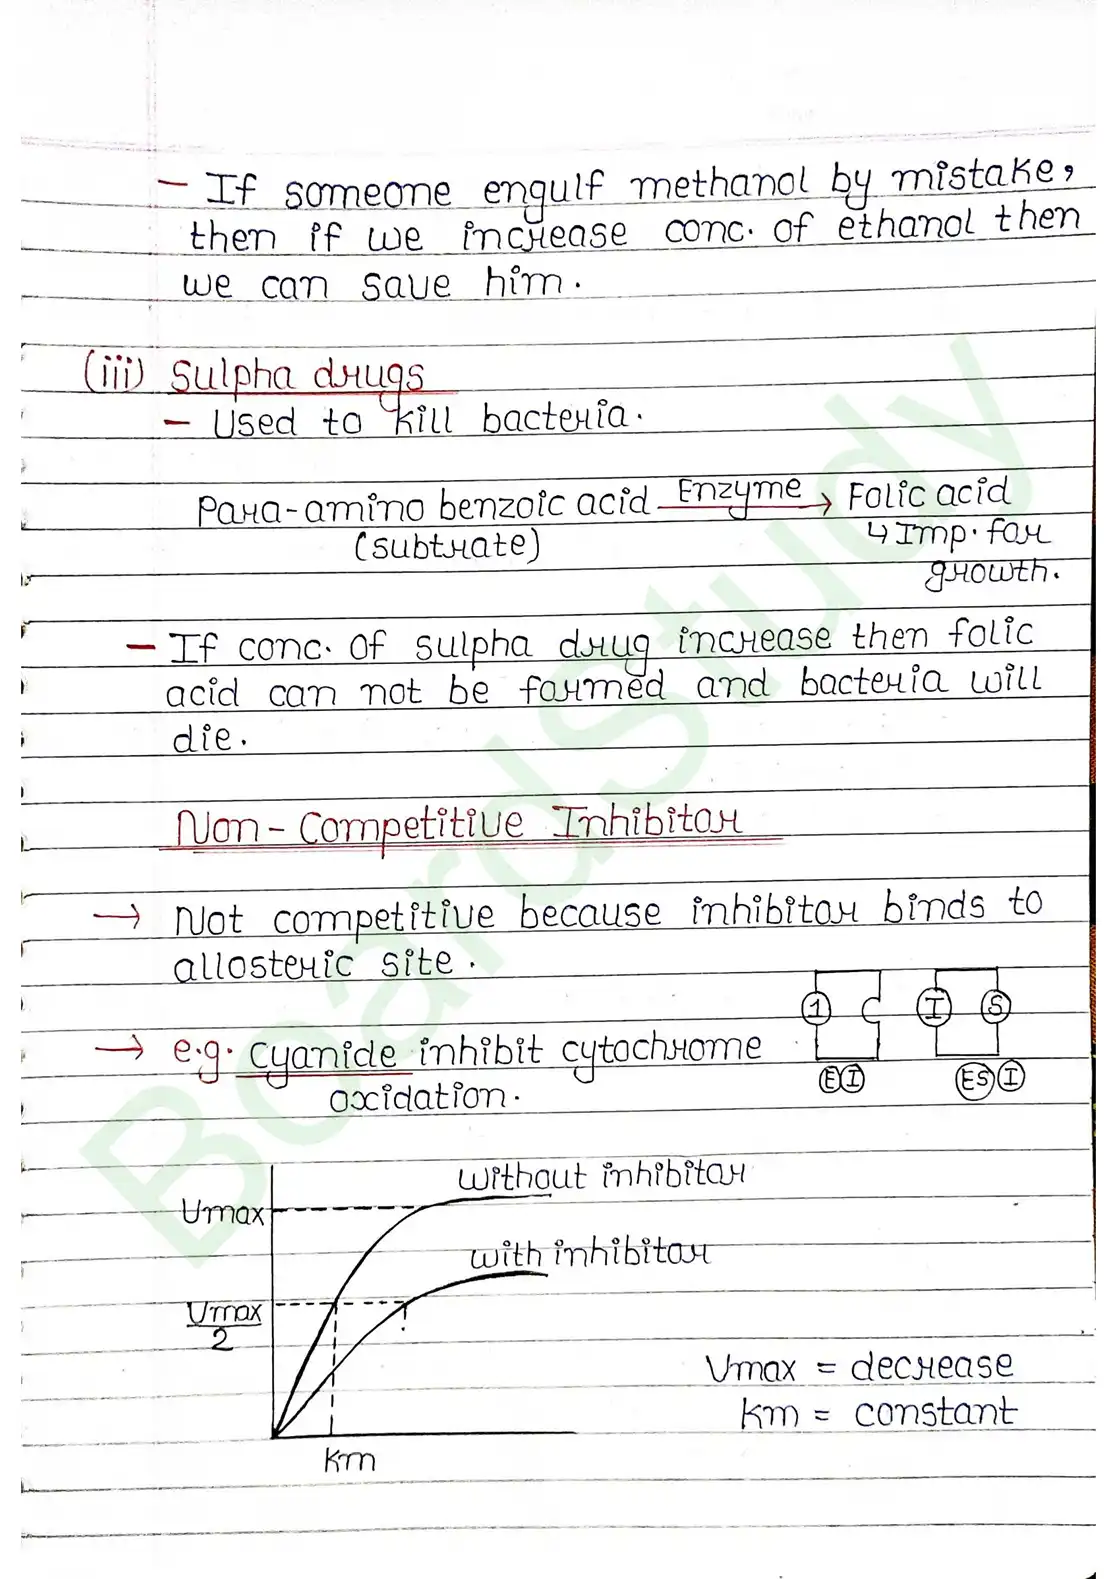 - If someone engulf methanol by mistake,
then if we increase conc. of ethanol then
we can save him.
(iii) Sulpha drugs
- Used to kill bacteria.
Para-amino benzoic acid Enzyme → Folic acid
(subtrate) ↳ Imp. for
growth.
- If conc. of sulpha drug increase then folic
acid can not be formed and bacteria will
die.
Non-Competitive Inhibitor
→ Not competitive because inhibitor binds to
allosteric site.
1 I S
→ e.g. Cyanide inhibit cytochrome
EI ES I
oxidation.
without inhibitor
Vmax
with inhibitor
Vmax
2
Vmax = decrease
km = constant
km
BoardStudy